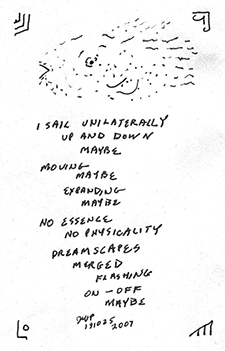 I SAIL UNILATERALLY
UP AND DOWN
MAYBE
MOVING
MAYBE
EXPANDING
MAYBE
NO ESSENCE
NO PHYSICALITY
DREAMSCAPES
MERGED
FLASHING
ON - OFF
MAYBE
191025
2007